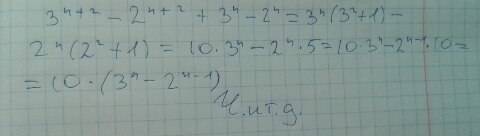 3ⁿ⁺² - 2ⁿ⁺² + 3ⁿ - 2ⁿ = 3ⁿ(3²+1) -
2ⁿ(2²+1) = 10·3ⁿ - 2ⁿ·5 = 10·3ⁿ - 2ⁿ⁻¹·10 =
= 10·(3ⁿ - 2ⁿ⁻¹)
Ч.и.т.д.